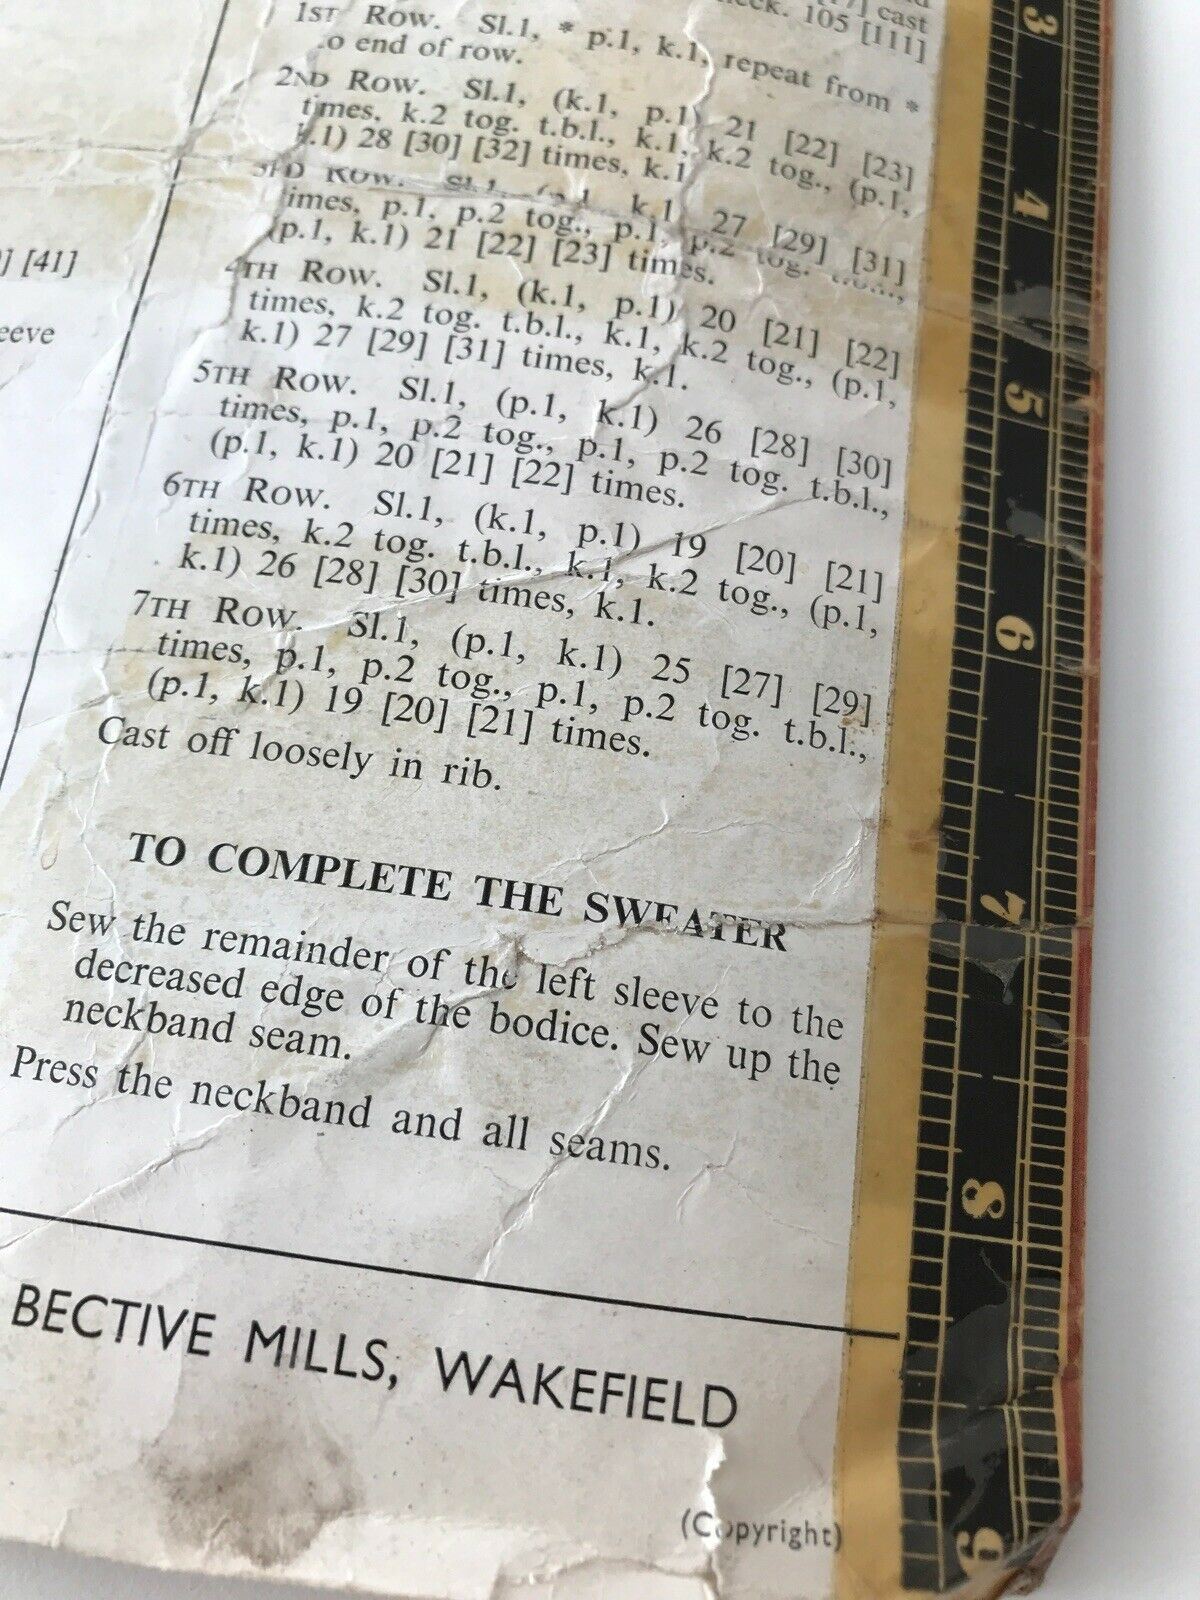 cast
105 [111]
1ST Row. Sl.1, * p.1, k.1, repeat from *
to end of row.
2ND Row. Sl.1, (k.1, p.1) 21 [22] [23]
times, k.2 tog. t.b.l., k.1, k.2 tog., (p.1,
k.1) 28 [30] [32] times, k.1
3RD Row. Sl.1, (p.1, k.1) 27 [29] [31]
times, p.1. p.2 tog., p.1, p.2 tog. t.b.l.,
(p.1, k.1) 21 [22] [23] times.
4TH Row. Sl.1, (k.1, p.1) 20 [21] [22]
times, k.2 tog. t.b.l., k.1, k.2 tog., (p.1,
k.1) 27 [29] [31] times, k.1.
5TH Row. Sl.1, (p.1, k.1) 26 [28] [30]
times, p.1, p.2 tog., p.1, p.2 tog. t.b.l.,
(p.1, k.1) 20 [21] [22] times.
6TH Row. Sl.1, (k.1, p.1) 19 [20] [21]
times, k.2 tog. t.b.l., k.1, k.2 tog., (p.1,
k.1) 26 [28] [30] times, k.1.
7TH Row. Sl.1, (p.1, k.1) 25 [27] [29]
times, p.1, p.2 tog., p.1, p.2 tog. t.b.l.,
(p.1, k.1) 19 [20] [21] times.
Cast off loosely in rib.
TO COMPLETE THE SWEATER
Sew the remainder of the left sleeve to the
decreased edge of the bodice. Sew up the
neckband seam.
Press the neckband and all seams.
BECTIVE MILLS, WAKEFIELD
(Copyright)
] [41]
eeve
3
4
5
6
7
8
9